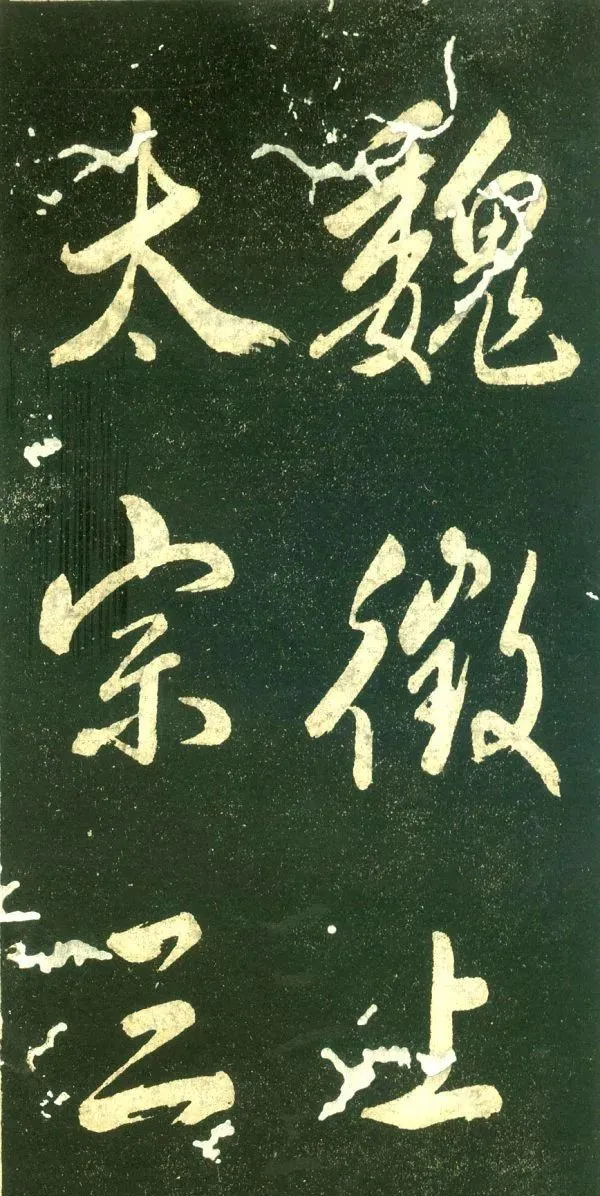 魏徵上
太宗三